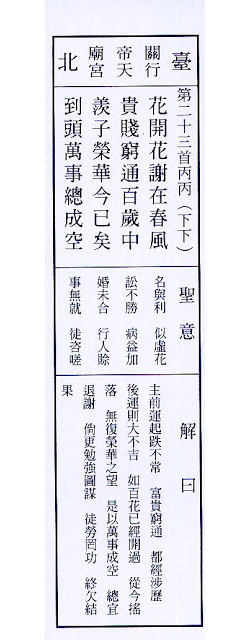 臺北
關帝廟
行天宮
第二十三首丙丙(下下)
花開花謝在春風
貴賤窮通百歲中
羨子榮華今已矣
到頭萬事總成空
聖意
名與利 似虛花
訟不勝 病益加
婚未合 行人賒
事無就 徒咨嗟
解曰
主前運起跌不常 富貴窮通 都經涉歷
後運則大不吉 如百花已經開過 從今搖
落 無復榮華之望 是以萬事成空 總宜
退謝 倘更勉強圖謀 徒勞罔功 終欠結
果